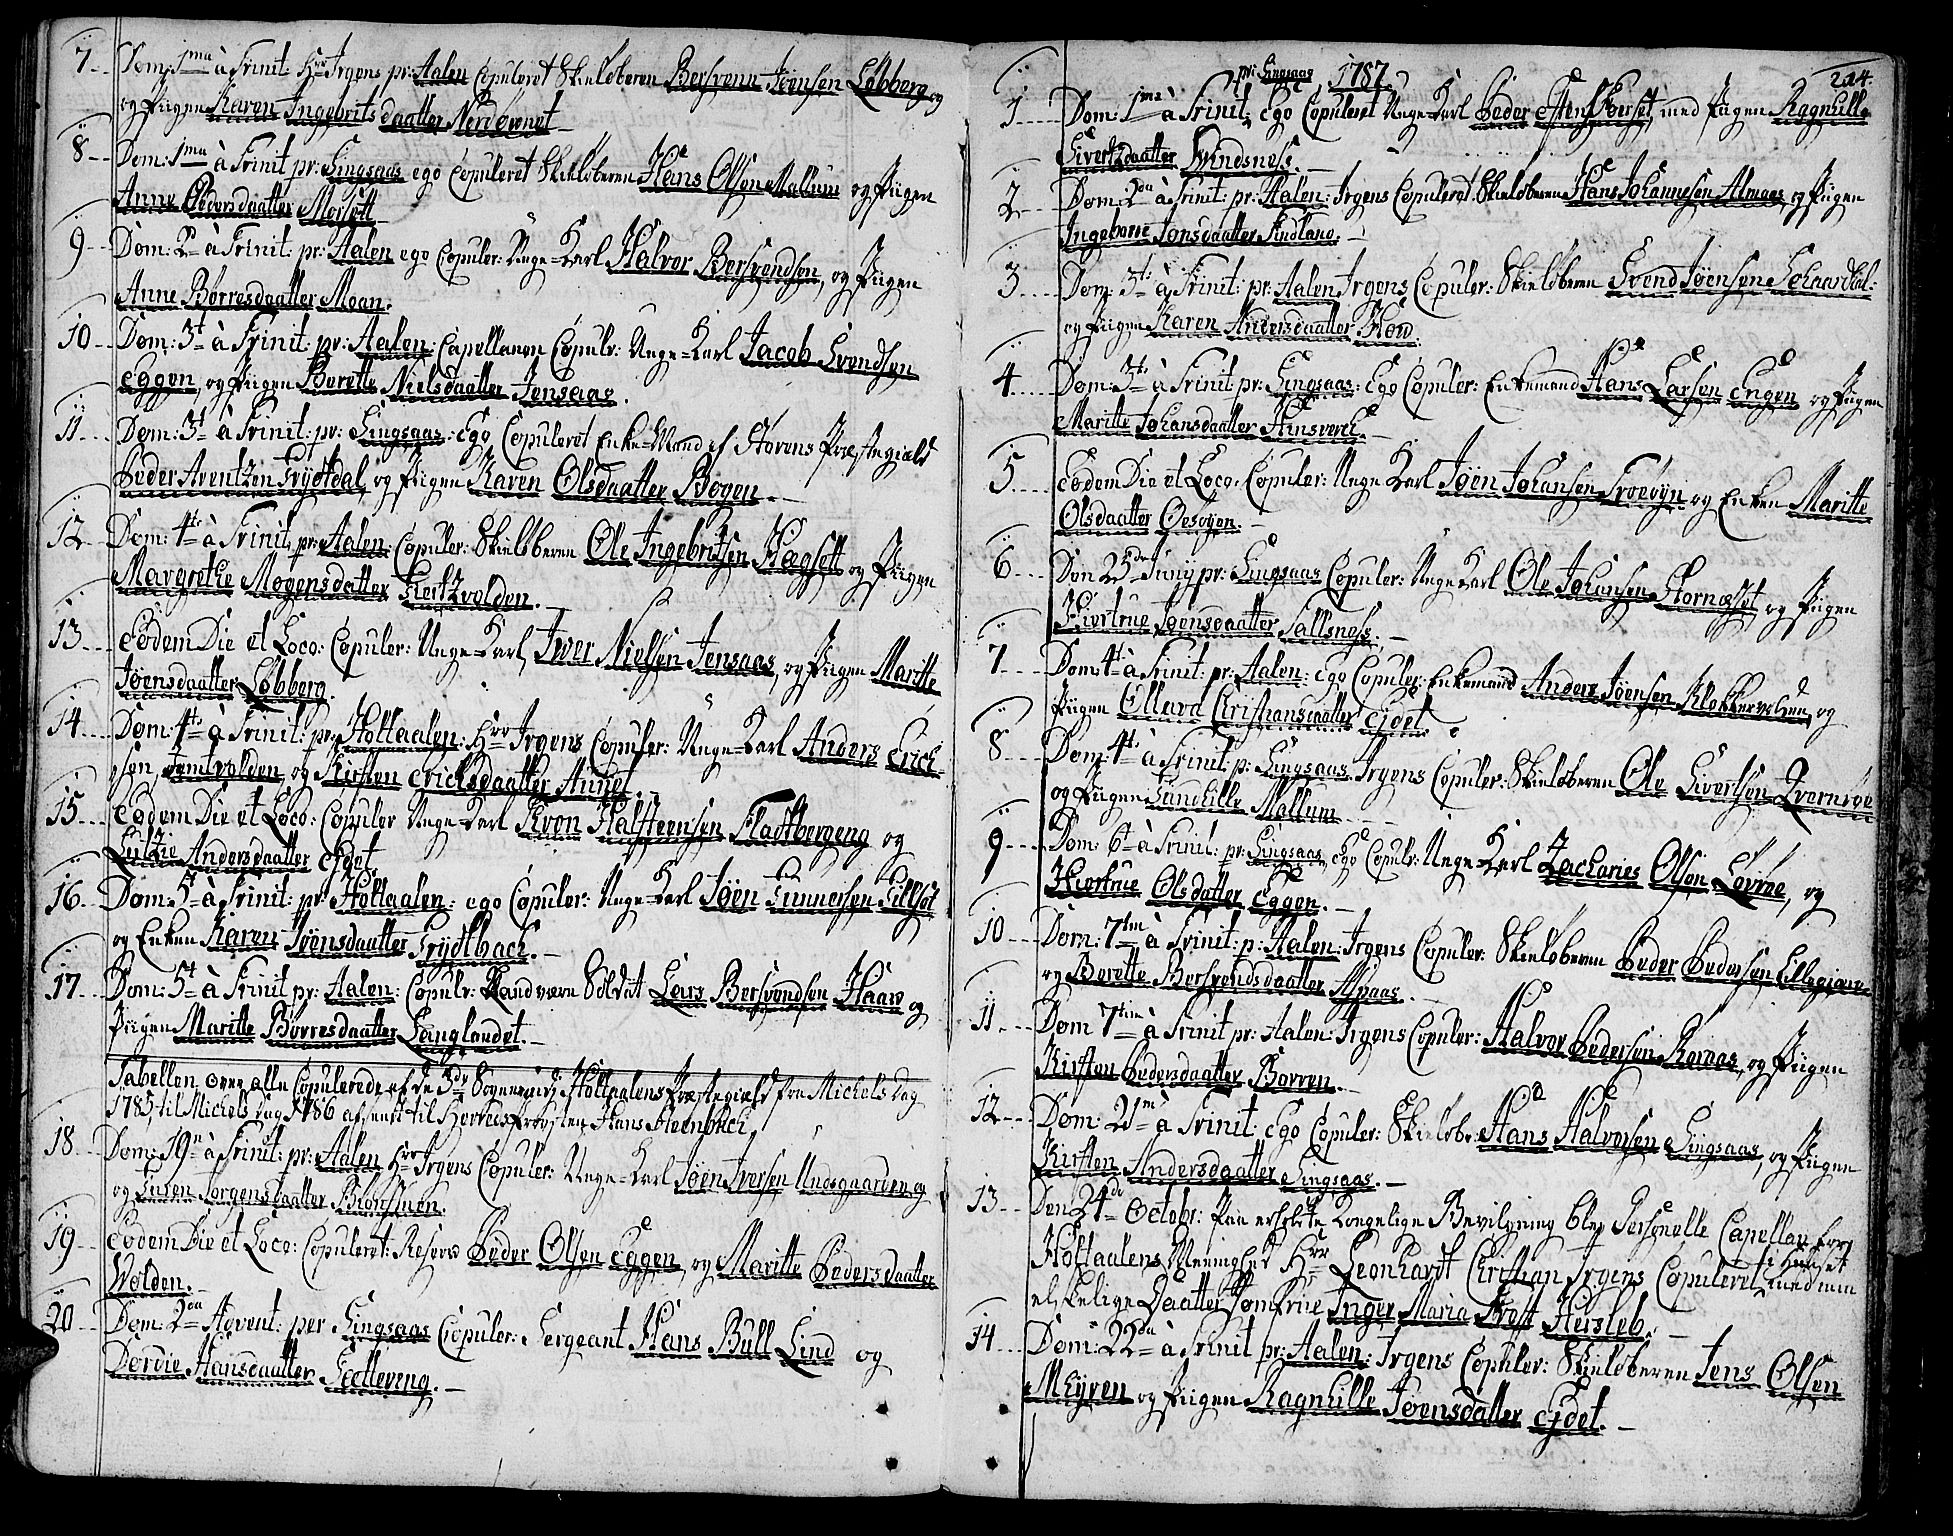 7. Dom: 1ma à Trinit: Hr Irgens pr: Aalen Copuleret Skieløberen Bersvenn Jøensen Løbberg og
og Piigen Karen Ingebrits daatter Nerdøvnet
8 Dom: 1ma à Trinit: pr: Singsaas ego Copuleret Skieløberen Hans Olsøn Mallum og Piigen
Anne Pedersdaatter Morsett
9 Dom: 2da à Trinit: pr: Aalen ego Copuler: Unge-Karl Halvor Bersvendsøn, og Piigen
Anne Børresdaatter Moan.
10 Dom: 3t à Trinit: pr: Aalen: Capellanen Copulr: Unge-Karl Jacob Svendsen
Eggen, og Piigen Berette Nielsdaatter Jensaas.
11 Dom: 3t à Trinit: pr: Singsaas: Ego Copuleret Enke-Mand af Størens Præstegiæld
Peder Arentzen Frydtdal, og Piigen Karen Olsdaatter Bogen.
12 Dom: 4te à Trinit: pr: Aalen: Copuler: Skieløberen Ole Ingebritsen Hægsett og Piigen
Margrethe Mogensdatter Hertzvolden.
13 Eodem Die et Loco: Copuler: Unge-Karl Iver Nielsen Jensaas, og Piigen Maritte
Jøensdaatter Løbberg.
14 Dom: 4te à Trinit: pr: Holtaalen: Hrr Irgens Copuler: Unge-Karl Anders Erich-
sen, vemtvolden og Kirsten Erichsdaatter Aunet.
15 Eodem Die et Loco: Copuler Unge-Karl Svon Halsteensen Fladtbergeng og
Siitzie Andersdaatter Eidet.
16 Dom: 5t à Trinit: pr: Holtaalen: ego Copuler: Unge-Karl Jøen Gunnersen Gilset
og Enken Karen Iversdaatter Frydlbach.
17 Dom: 5t à Trinit pr: Aalen: Copulr: Landværn Soldat Lars Bersvendsen Haaw og
Piigen Maritte Børresdaatter Langlandet.
Tabellen over alle Copulerede af de 3de Sogner i Holtaalens Præstegiæld fra Michels Dag
1785 til Michels Dag 1786 afsendt til Herreds Provsten Hans Steenbuch.
18 Dom: 19n à Trinit: pr: Aalen Hrr Irgens Copuler: Unge-Karl Jøen Iversen Undsgaarden og
og Guren Jørgensdaatter
19 Eodem Die et Loco: Copuleret: Reserv Peder Olsen Eggen, og Maritte Pedersdaatter
Volden.
20 Dom: 2da Advent: per Singsaas Copuler: Sergeant Hans Bull Lind og
Dordie Hansdaatter Fætteveng.
pr: Singsaas 1787. 214.
1 Dom: 1ma à Trinit: Ego Copuleret Unge-Karl Peder Estensen med Piigen Ragnhille
Sivertzdaatter Svindsness.
2 Dom: 2da à Trinit: pr: Aalen: Irgens Copuleret Skieløberen Hans Johannesen Almaas og Piigen
Ingeborre Jonsdaatter Aindland.
3 Dom: 3te à Trinit: pr: Aalen Irgens Copuler: Skieløberen Svend Jøensen
og Piigen Karen Andersdaatter How.
4 Dom: 3te à Trinit: pr: Singsaas: Ego Copuler: Enkemand Hans Larsen Engen og Piigen
Maritte Johansdaatter Hinsverck.
5 Eodem Die et Loco. Copuler: Unge Karl Jøen Johansen Froevøyn og Enken Maritte
Olsdaatter Oesøyen.
6 Den 25de Junij pr: Singsaas Copuler: Unge-Karl Ole Johansen Stornæsset og Piigen
Kiertrue Joensdaatter Sallsness.
7 Dom: 4t à Trinit: pr: Aalen: Ego Copuler: Enkemand Anders Jøensen Klokkervolden og
Piigen Ollava Christiansdaatter Eidet.
8 Dom: 4t à Trinit: p: Singsaas Irgens Copuler: Skieløberen Ole Sivertsøn Qverneøe
og Piigen Gunhille Mallum
9 Dom: 6t à Trinit: pr: Singsaas, Ego Copulr: Unge-Karl Zacharies Olsøn Løvrøe, og
Kiertrue Olsdatter Eggen.
10 Dom: 7tm à Trinit: p: Aalen: Irgens Copuler: Skieløberen Peder Pedersen
og Berette Bersvendsdaatter Alpaas.
11 Dom 7tm à Trinit pr: Aalen: Irgens Copuler: Halvor Pedersen Ramas, og Piigen
Kirsten Pedersdaatter Borren.
12 Dom: 21m à Trinit: Ego Copuler: Skieløbr: Hans Halvorsen Singsaas, og Piigen
Kirsten Andersdaatter Singsaas.
13 Den 24de Octobr: Paa erholdte Kongelige Bevilgning blev Personelle Capellan for
Holtaalens Menninghed Hrr Leonhardt Christian Irgens Copuleret i Huuset med min
elskelige Daatter Jomfrue Inger Maria Trost Hersleb.
14 Dom: 22da à Trinit pr: Aalen: Irgens Copuler: Skieløberen Jens Olsen
Mÿren og Piigen Ragnhille Jøensdatter Eidet.